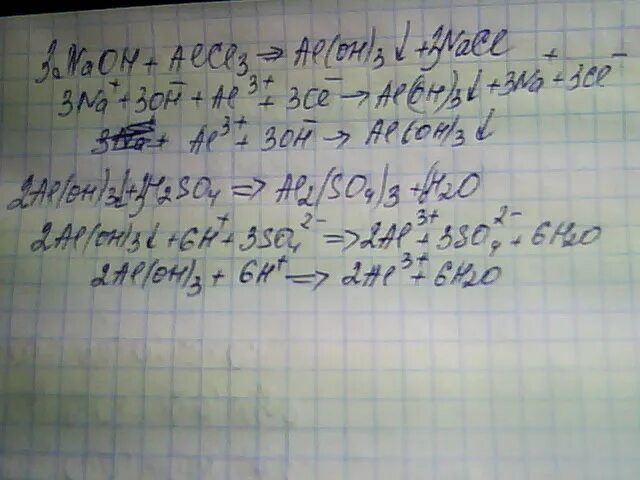 3NaOH + AlCl3 => Al(OH)3↓ + 3NaCl
3Na⁺ + 3OH⁻ + Al³⁺ + 3Cl⁻ → Al(OH)3↓ + 3Na⁺ + 3Cl⁻
Al³⁺ + 3OH⁻ → Al(OH)3↓
2Al(OH)3↓ + 3H2SO4 => Al2(SO4)3 + 6H2O
2Al(OH)3↓ + 6H⁺ + 3SO4²⁻ => 2Al³⁺ + 3SO4²⁻ + 6H2O
2Al(OH)3 + 6H⁺ => 2Al³⁺ + 6H2O